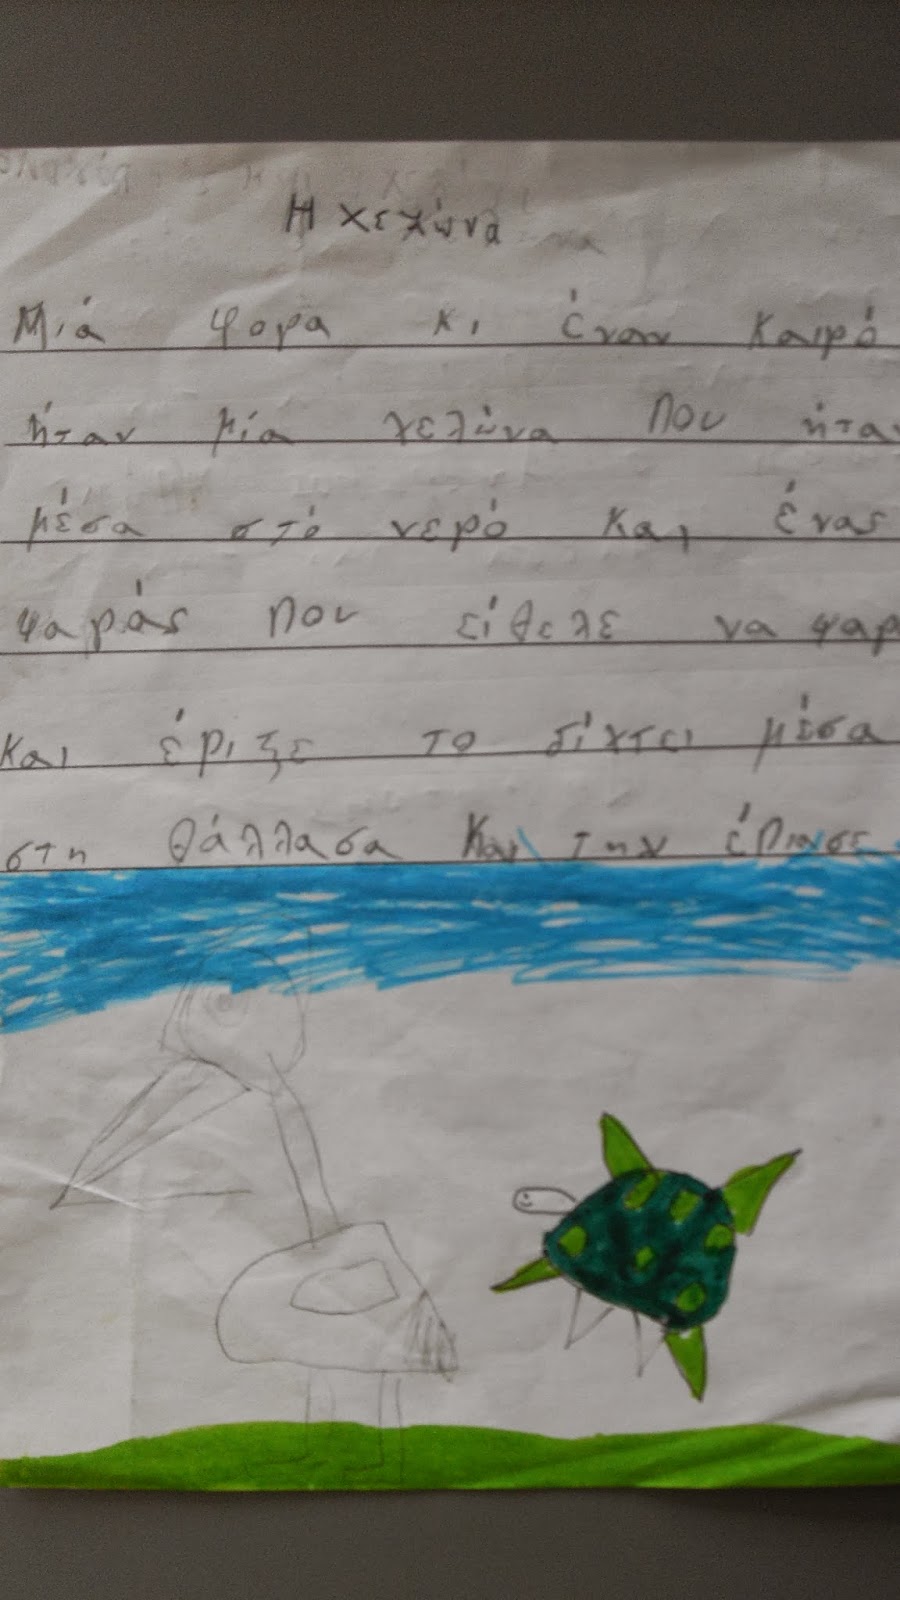 Η χελώνα
Μιά φορα κι έναν καιρό
ήταν μία χελώνα που ήταν
μέσα στό νερό και ένας
ψαράς που είθελε να ψαρ
και έριξε το δίχτει μέσα
στη θάλλασα και την έπιασε